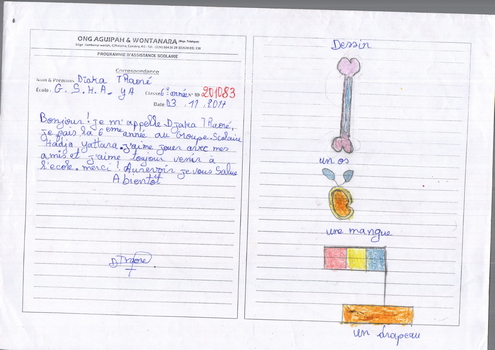 ONG AGUIPAH & WONTANARA
PROGRAMME D'ASSISTANCE SCOLAIRE
Correspondance
Nom & Prénoms Diaka TRaoré
École: G. S. H. A. yA Classe 6e année N° 201083
Date 03. 11. 2011
Bonjour! je m'appelle Djaka TRaoré,
je fais la 6ème année au Groupe Scolaire
Hadja yattara. j'aime jouer avec mes
amis et j'aime toujour venir à
l'ecole. merci! Aurevoir je vous Salue
A bientôt
Dessin
un os
une mangue
un drapeau